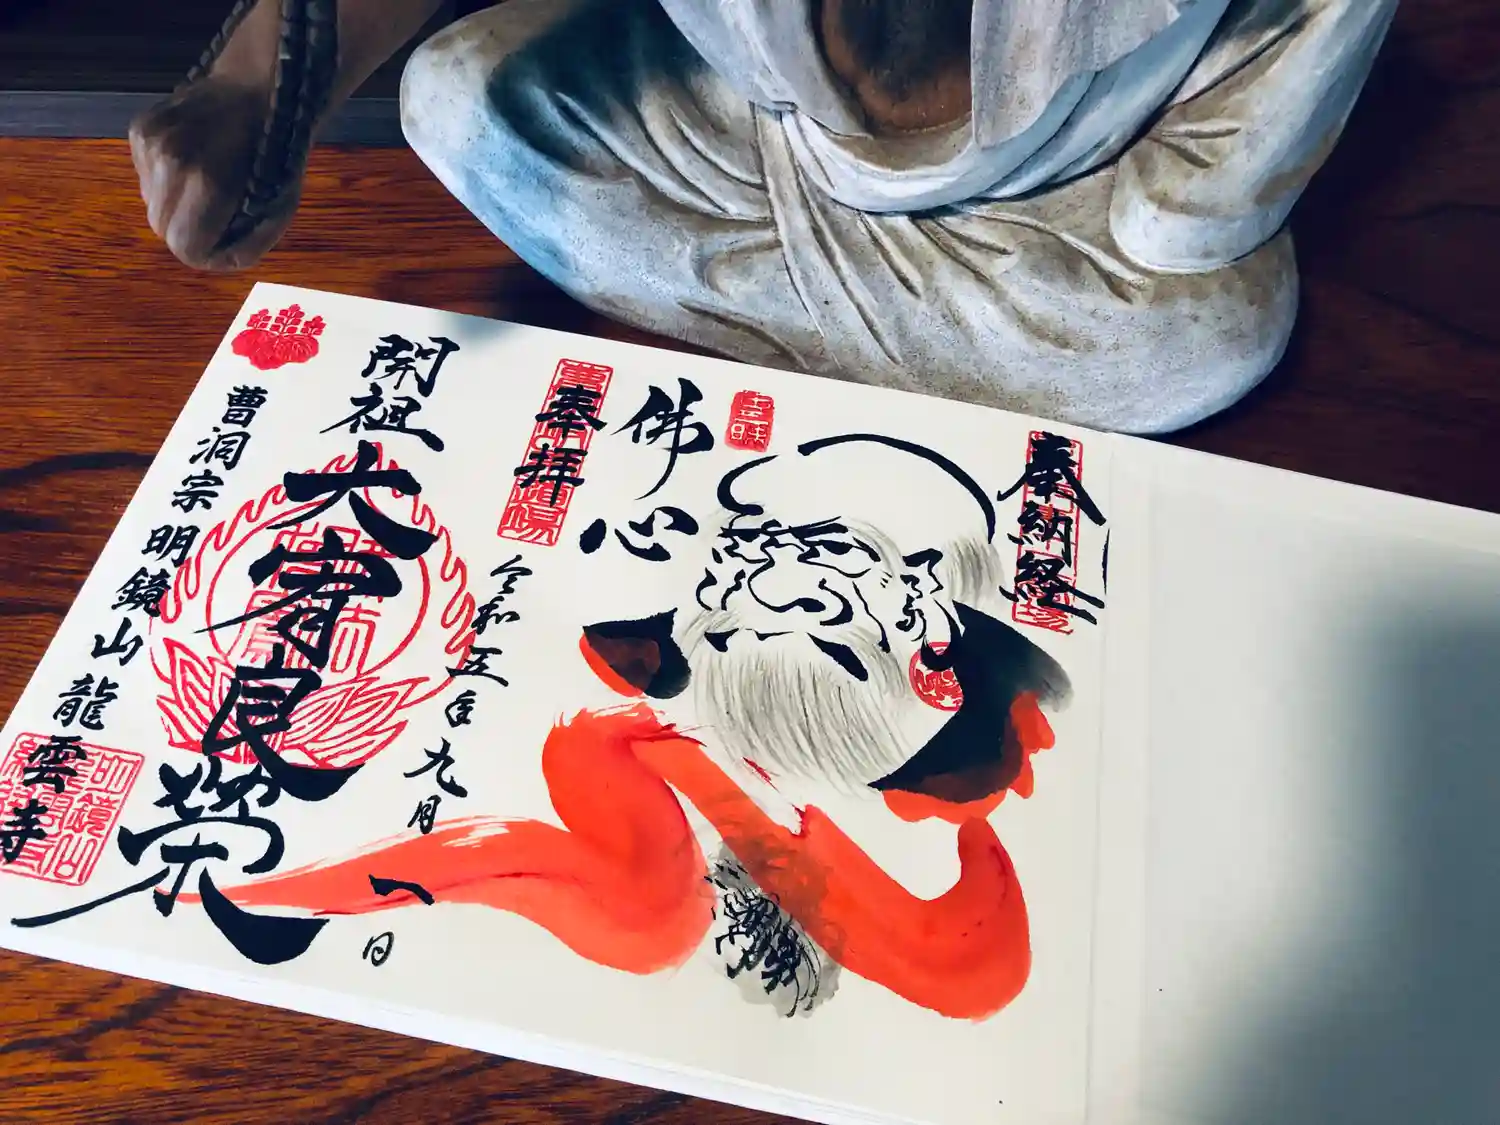 奉納経
佛心
奉拝
令和五年九月一日
開祖
大容良榮
曹洞宗 明鏡山 龍雲寺